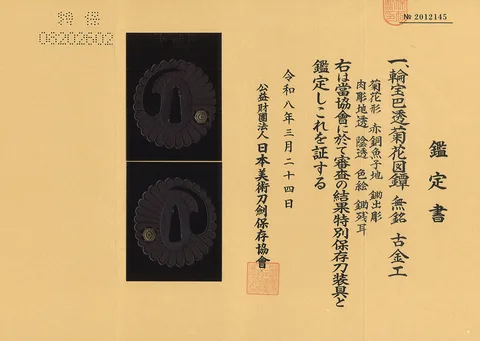 № 2012145
鑑定書
一、輪宝巴透菊花図鐔 無銘 古金工
菊花形 赤銅魚子地 鋤出彫
肉彫地透 陰透 色絵 鋤残耳
右は當協會に於て審査の結果特別保存刀装具と
鑑定しこれを証する
令和八年三月二十四日
公益財團法人 日本美術刀剣保存協會
特 保
08202602